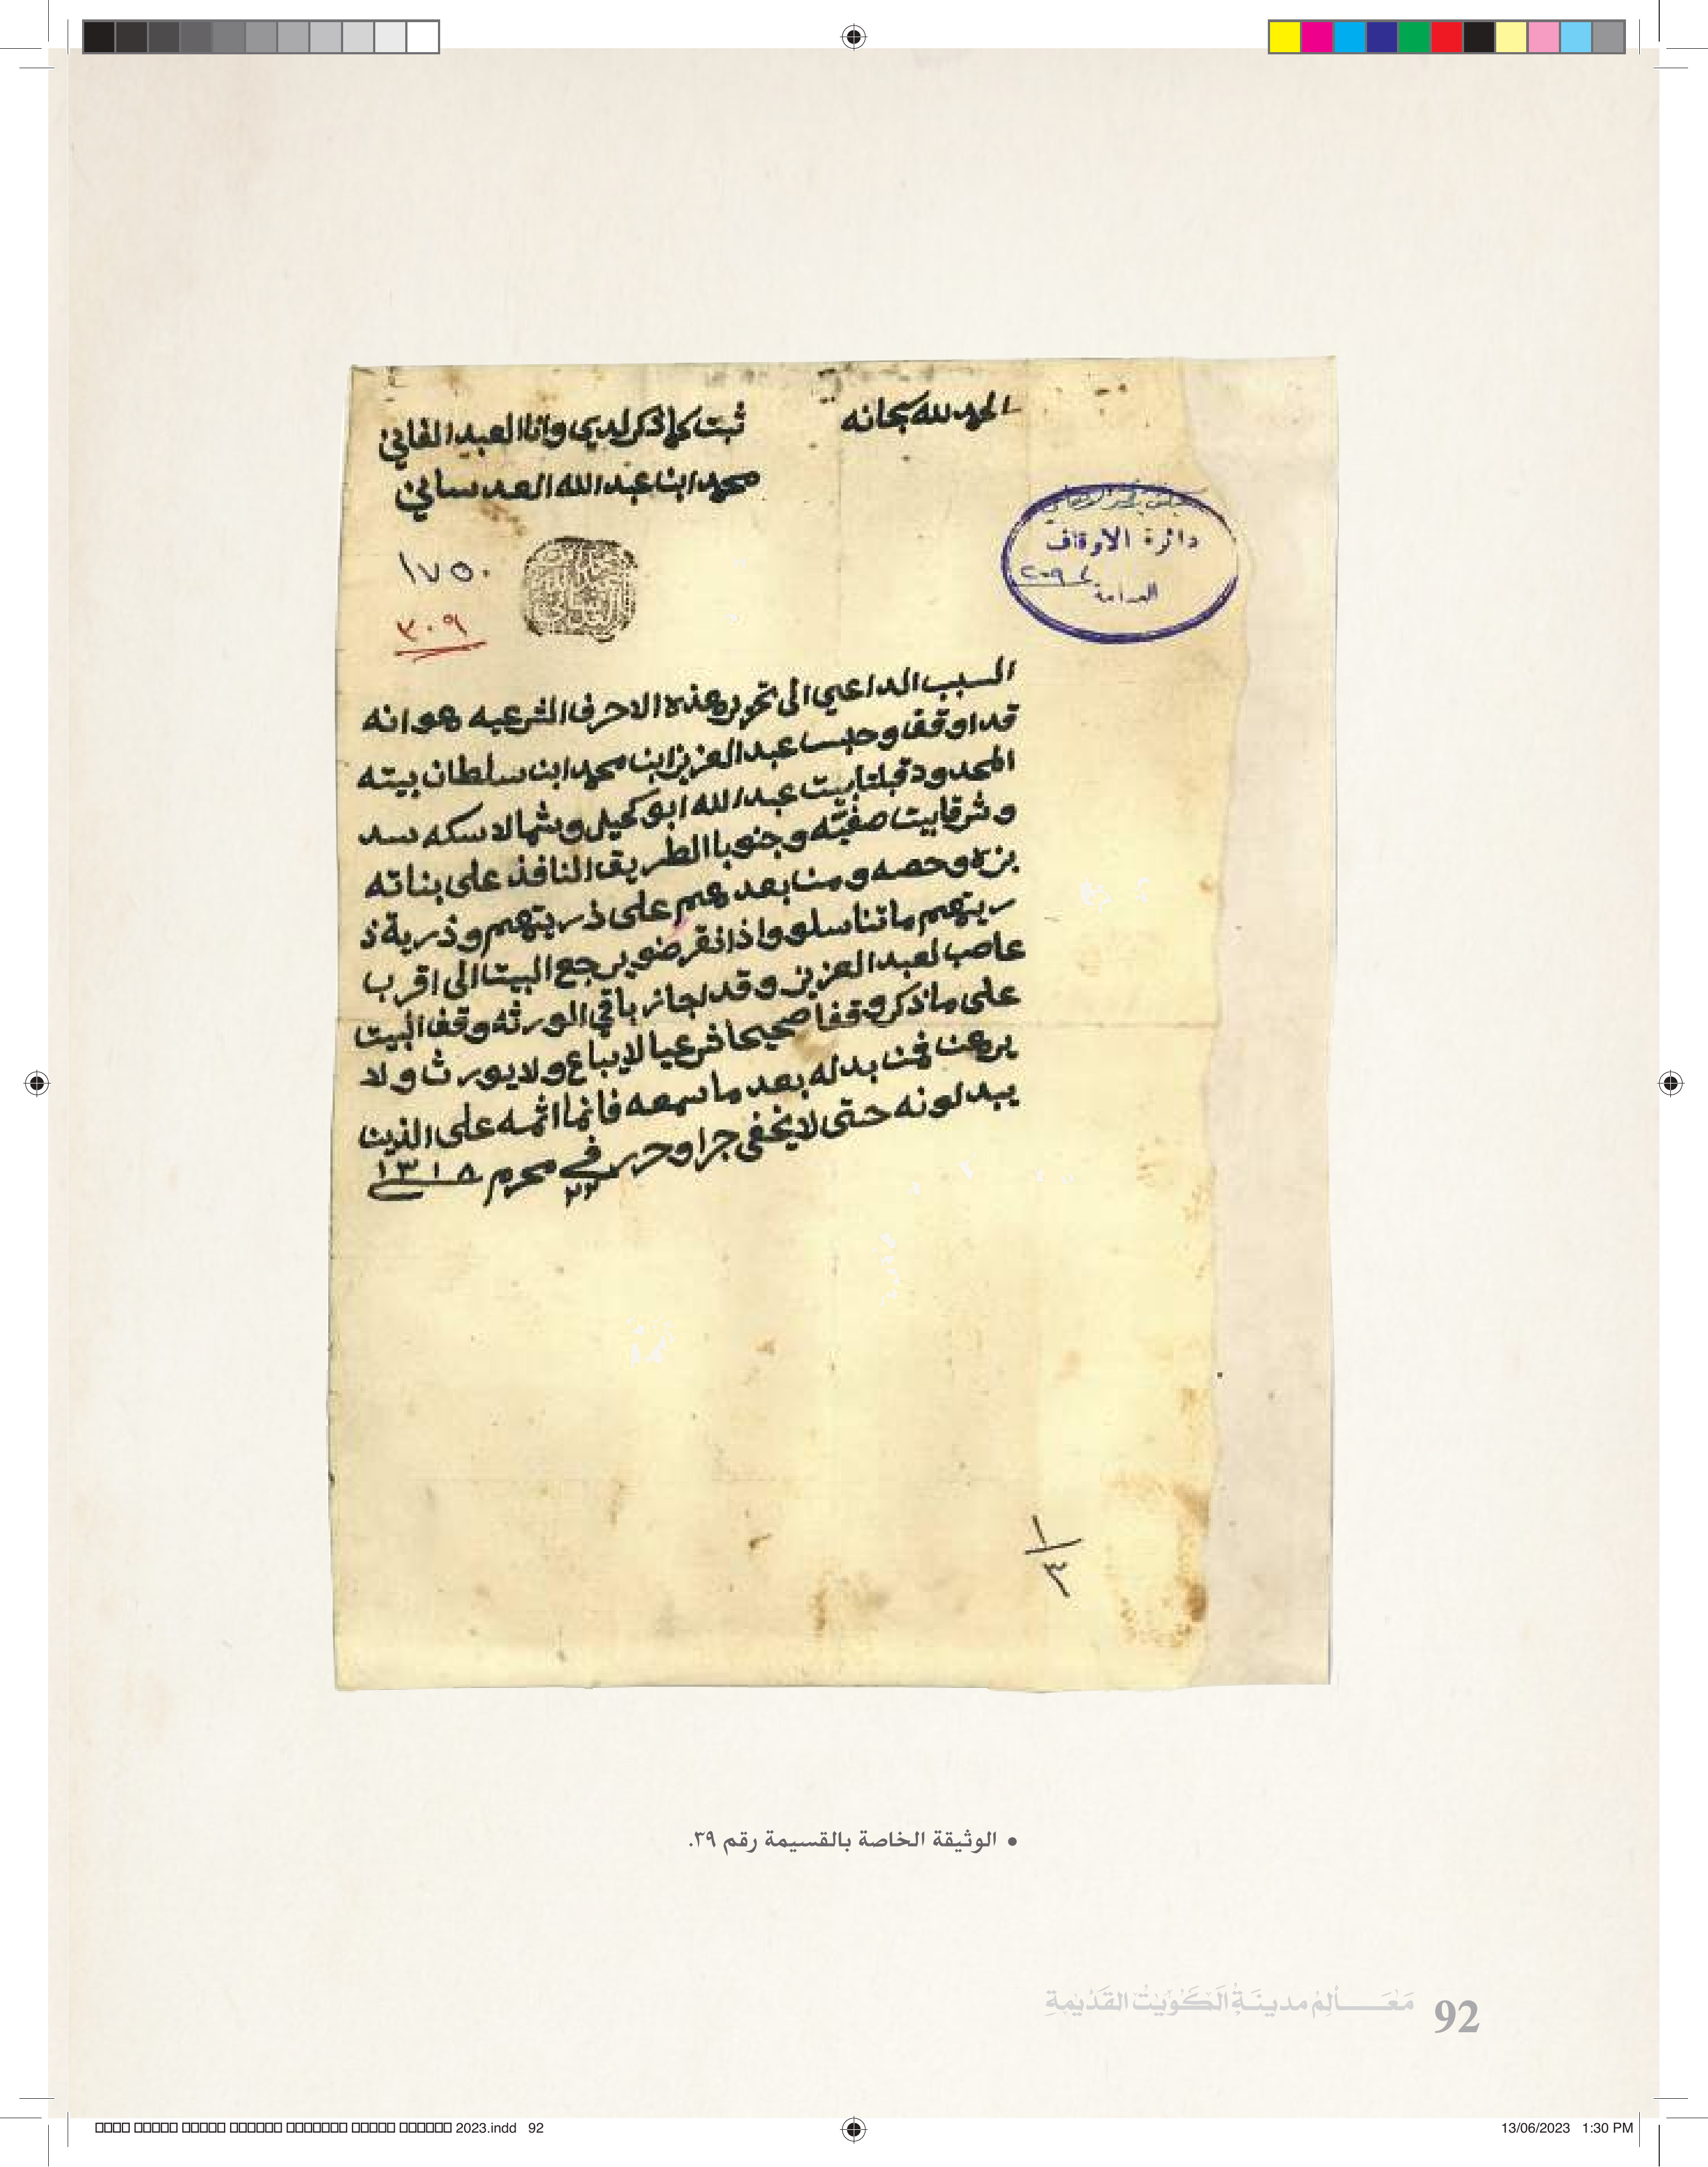 الحمد لله سبحانه
ثبت كما ذكر لدي وانا العبد الفاني
محمد ابن عبد الله العدساني
دائرة الاوقاف
العامة
١٧٥٠
٣٠٩
السبب الداعي الى تحرير هذه الاحرف الشرعيه هو انه
قد اوقف وحبس عبد العزيز ابن محمد ابن سلطان بيته
المحدود قبلتا بيت عبد الله ابو كحيل وشمالا سكه سد
وشرقا بيت صفيّه وجنوبا الطريق النافذ على بناته
بزه وحصه ومن بعدهم على ذريتهم وذرية ذ
ريتهم ما تناسلو واذا نقرضو يرجع البيت الى اقرب
عاصب لعبد العزيز وقد اجاز باقي الورثه وقف البيت
على ما ذكر وقفا صحيحا شرعيا لا يباع ولا يورث ولا
يرهن فمن بدله بعد ما سمعه فانما اثمه على الذين
يبدلونه حتى لا يخفى جرا وحرر في ٢٢ محرم ١٣١٨
١/٣
• الوثيقة الخاصة بالقسيمة رقم ٣٩.
مَعَالِمُ مدينَةِ الكُوَيْتِ القَدِيمَةِ 92
2023.indd 92
13/06/2023 1:30 PM